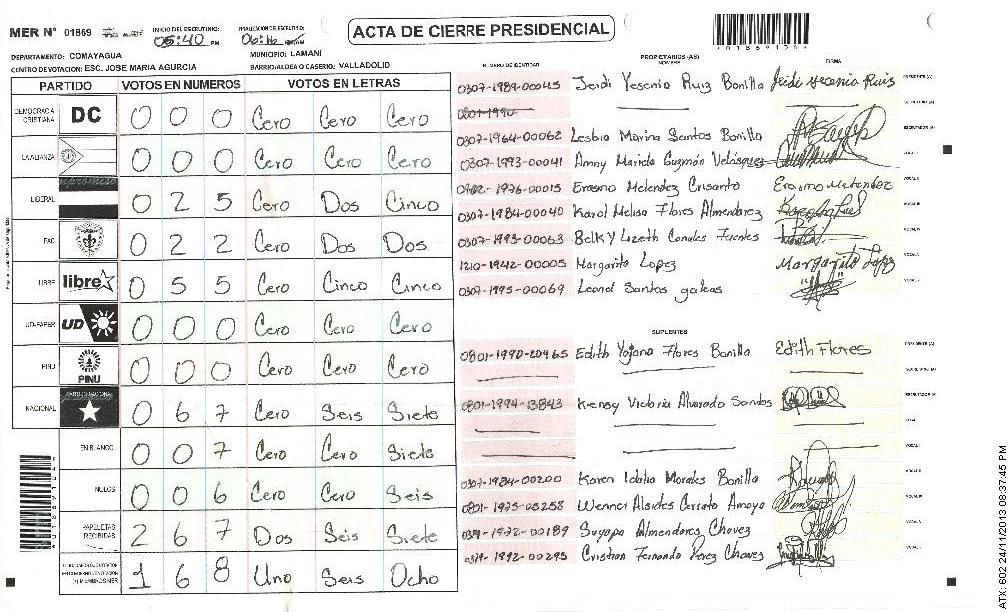 MER N° 01869
INICIO DEL ESCRUTINIO: 05:40 PM
FINALIZACION DEL ESCRUTINIO: 06:16
ACTA DE CIERRE PRESIDENCIAL
DEPARTAMENTO: COMAYAGUA
MUNICIPIO: LAMANI
CENTRO DE VOTACION: ESC. JOSE MARIA AGURCIA
BARRIO/ALDEA O CASERIO: VALLADOLID
PARTIDO VOTOS EN NUMEROS VOTOS EN LETRAS
DEMOCRACIA CRISTIANA DC 0 0 0 Cero Cero Cero
LA ALIANZA 0 0 0 Cero Cero Cero
LIBERAL 0 2 5 Cero Dos Cinco
PAC 0 2 2 Cero Dos Dos
LIBRE libre 0 5 5 Cero Cinco Cinco
UD-FAPER UD 0 0 0 Cero Cero Cero
PINU PINU 0 0 0 Cero Cero Cero
NACIONAL 0 6 7 Cero Seis Siete
EN BLANCO 0 0 7 Cero Cero Siete
NULOS 0 0 6 Cero Cero Seis
PAPELETAS RECIBIDAS 2 6 7 Dos Seis Siete
1 6 8 Uno Seis Ocho
NUMERO DE IDENTIDAD PROPIETARIOS (AS) NOMBRE FIRMA
0307-1989-00045 Jeidi Yesenia Ruiz Bonilla Jeidi Yesenia Ruis PRESIDENTE (A)
0801-1990 SECRETARIO (A)
0307-1964-00062 Lesbia Marina Santos Bonilla ESCRUTADOR (A)
0307-1993-00041 Anny Mariela Guzmán Velásquez VOCAL I
1976-00015 Erasmo Melendez Crisanto Erasmo Melendez VOCAL II
0307-1984-00040 Karol Melisa Flores Almendarez VOCAL III
0307-1993-00063 Belky Lizeth Canales Fuentes VOCAL IV
1210-1942-00005 Margarito Lopez Margarito Lopz
0307-1995-00069 Leonel Santos galeas
SUPLENTES
0801-1990-20465 Edith Yojana Flores Bonilla Edith Flores PRESIDENTE (A)
SECRETARIO (A)
0801-1994-13843 Kensy Victoria Alvarado Santos ESCRUTADOR (A)
VOCAL I
VOCAL II
0307-1984-00200 Karen Idalia Morales Bonilla VOCAL III
0801-1975-05258 Wenner Alsides Cerrato Amaya
1972-00189 Suyapa Almendares Chavez
1992-00295 Cristian Fernando Paez Chavez
01869106
ATX: 602 24/11/2013 08:37:45 PM